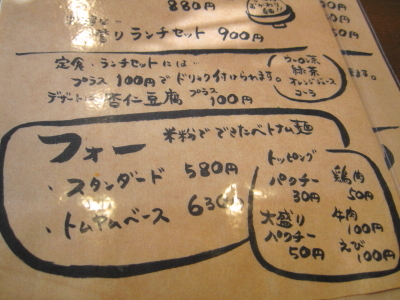 880円
盛りランチセット 900円
定食・ランチセットには
プラス100円でドリンク付けられます。
デザートに杏仁豆腐 プラス100円
ウーロン茶
緑茶
オレンジジュース
コーラ
ます。
フォー 米粉でできたベトナム麺
・スタンダード 580円
・トムヤムベース 630円
トッピング
パクチー 30円
鶏肉 50円
大盛りパクチー 50円
牛肉 100円
えび 100円